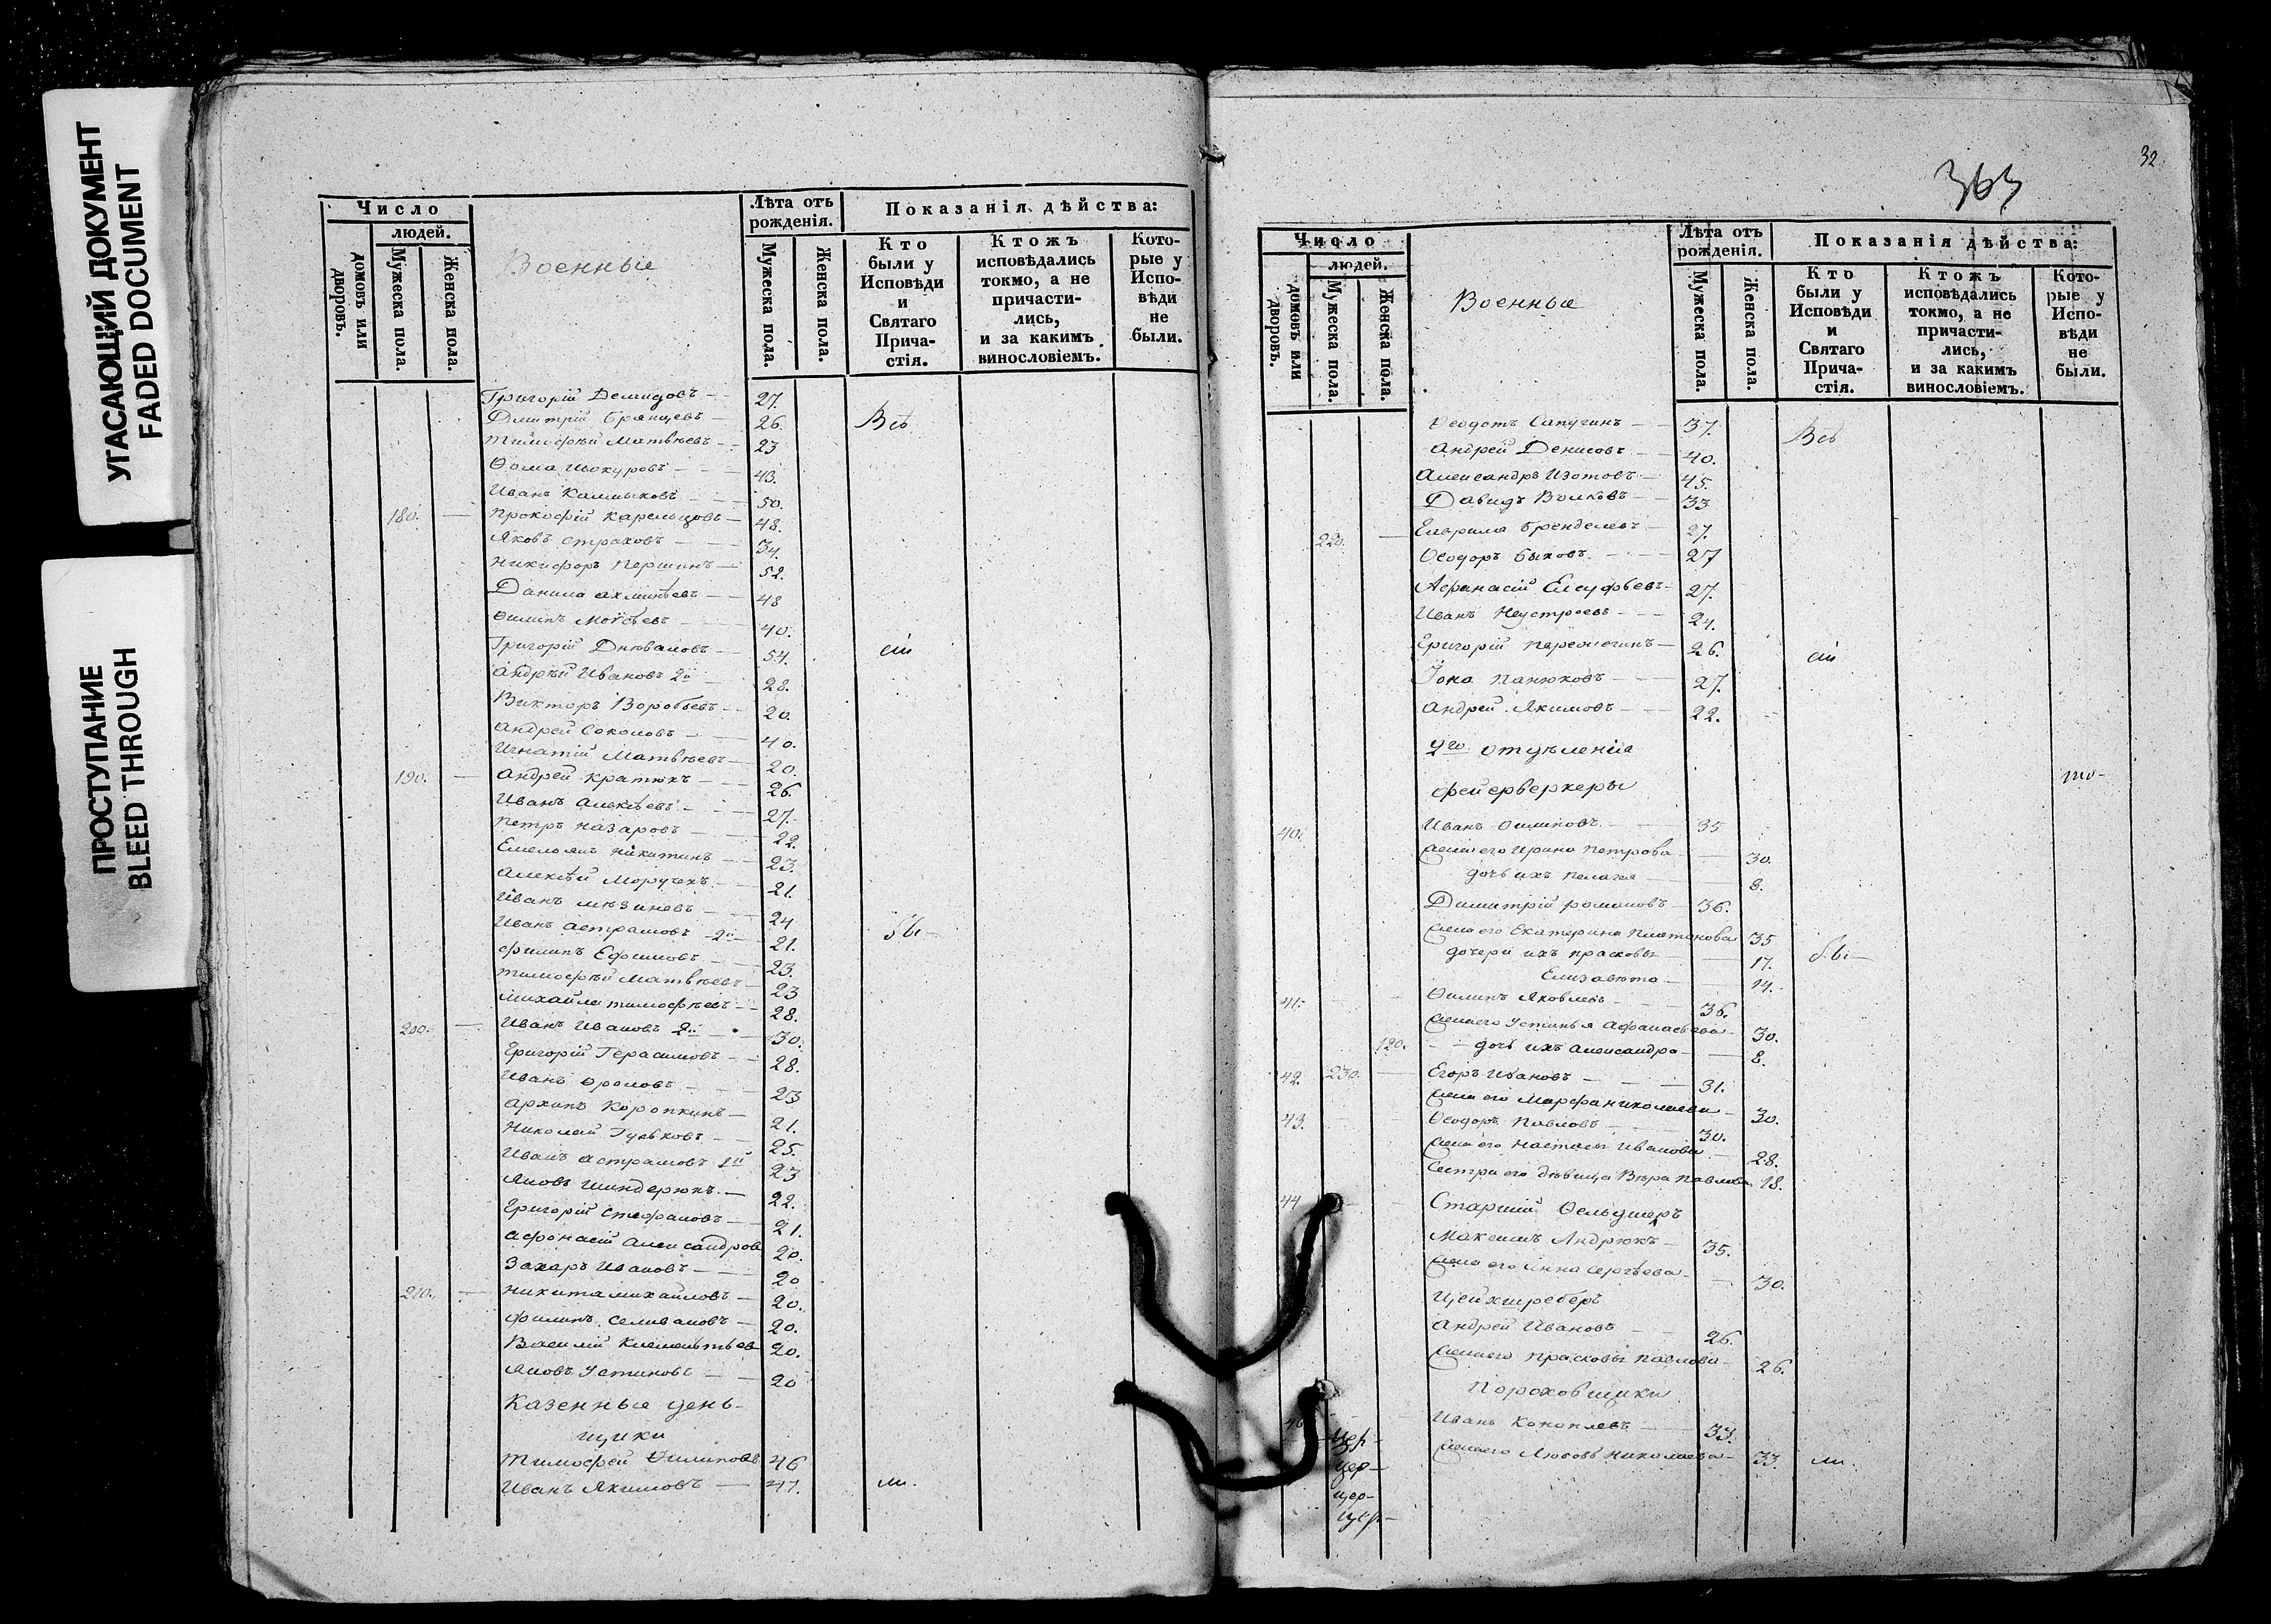 УГАСАЮЩИЙ ДОКУМЕНТ
FADED DOCUMENT
ПРОСТУПАНИЕ
BLEED THROUGH
Число
людей.
домовъ или дворовъ.
Мужеска пола.
Женска пола.
Военные
Лѣта отъ рожденія.
Мужеска пола.
Женска пола.
Показанія дѣйства:
Кто были у Исповѣди и Святаго Прича-стія.
Ктожъ исповѣдались токмо, а не причасти-лись, и за какимъ винословіемъ.
Кото-рые у Испо-вѣди не были.
Григорій Демидовъ 27.
Дмитрій Брянцевъ 26. Всѣ
Тимофѣй Матвѣевъ 23
Ѳома 43.
Иванъ Калмыковъ 50.
180. Прокофій Карельцовъ 48.
Яковъ Страховъ 34.
Никифоръ Першинъ 52.
Данила 48
Ѳилипъ Моѵсѣевъ 40.
Григорій 54.
Андрей Ивановъ 2й 28.
Викторъ Воробьевъ 20.
Андрей Соколовъ 40.
Игнатій Матвѣевъ 20.
190. Андрей Кратюкъ 26.
Иванъ Алексѣевъ 27.
Петръ Назаровъ 22.
Емельянъ Никитинъ 23.
Алексѣй 21.
Иванъ 24
Иванъ Астрамовъ 2й 21. бы-
Филипъ Ефимовъ 23.
Тимофѣй Матвѣевъ 23
Михайла Тимофѣевъ 28.
200. Иванъ Ивановъ 2й 30.
Григорій Герасимовъ 28.
Иванъ Ѳроловъ 23
Архипъ Коропкинъ 21.
Николай Гуськовъ 25.
Иванъ Астрамовъ 23
Яковъ Шиндерюкъ 22.
Григорій Стефановъ 21.
Афонасій Александровъ 20.
Захаръ Ивановъ 20
210. Никита Михайловъ 20.
Филипъ Селивановъ 20.
Василій Клементьев 20.
Яковъ Устиновъ 20
Казенные день-
щики
Тимофей Ѳилиповъ 46
Иванъ Якимовъ 47. ли.
32.
363
Число
людей.
домовъ или дворовъ.
Мужеска пола.
Женска пола.
Военные
Лѣта отъ рожденія.
Мужеска пола.
Женска пола.
Показанія дѣйства:
Кто были у Исповѣди и Святаго Прича-стія.
Ктожъ исповѣдались токмо, а не причасти-лись, и за какимъ винословіемъ.
Кото-рые у Испо-вѣди не были.
Ѳеодотъ Сапугинъ 37.
Андрей Денисовъ 40. Всѣ
Александръ Изотовъ 45.
Давидъ Волковъ 33
220. Гаврила 27.
Ѳеодоръ Быковъ 27
Афанасій Елуфьевъ 27.
Иванъ Неустроевъ 24.
Григорій Пережегинъ 26.
Іона Панюковъ 27.
Андрей Якимовъ 22.
отдѣленія
фейерверкеры
40. Иванъ Ѳилиповъ 35
Жена его Ирина Петрова 30.
дочь ихъ Пелагея 8.
Димитрій Романовъ 36.
Жена его Екатерина Платонова 35
дочери ихъ Прасковья 17. бы-
Елизавета 14.
41. Ѳилипъ Яковлевъ 36.
Жена его Устинья Афанасьева 30.
120. дочь ихъ Александра 8.
42. 230. Егоръ Ивановъ 31.
Жена его Марфа Николаева 30.
43. Ѳеодоръ Павловъ 30.
Жена его Настасья Иванова 28.
Сестра его дѣвица Вѣра Павлова 18.
44 Старшій Ѳельдшеръ
Максимъ Андрюкъ 35.
Жена его Анна Сергѣева 30.
Цейхшреберъ
Андрей Ивановъ 26.
Жена его Прасковья Павлова 26.
Пороховщики
Иванъ Коноплевъ 33.
Жена его Любовь Николаева 33. ли.
цер-
цер-
цер-
цер-